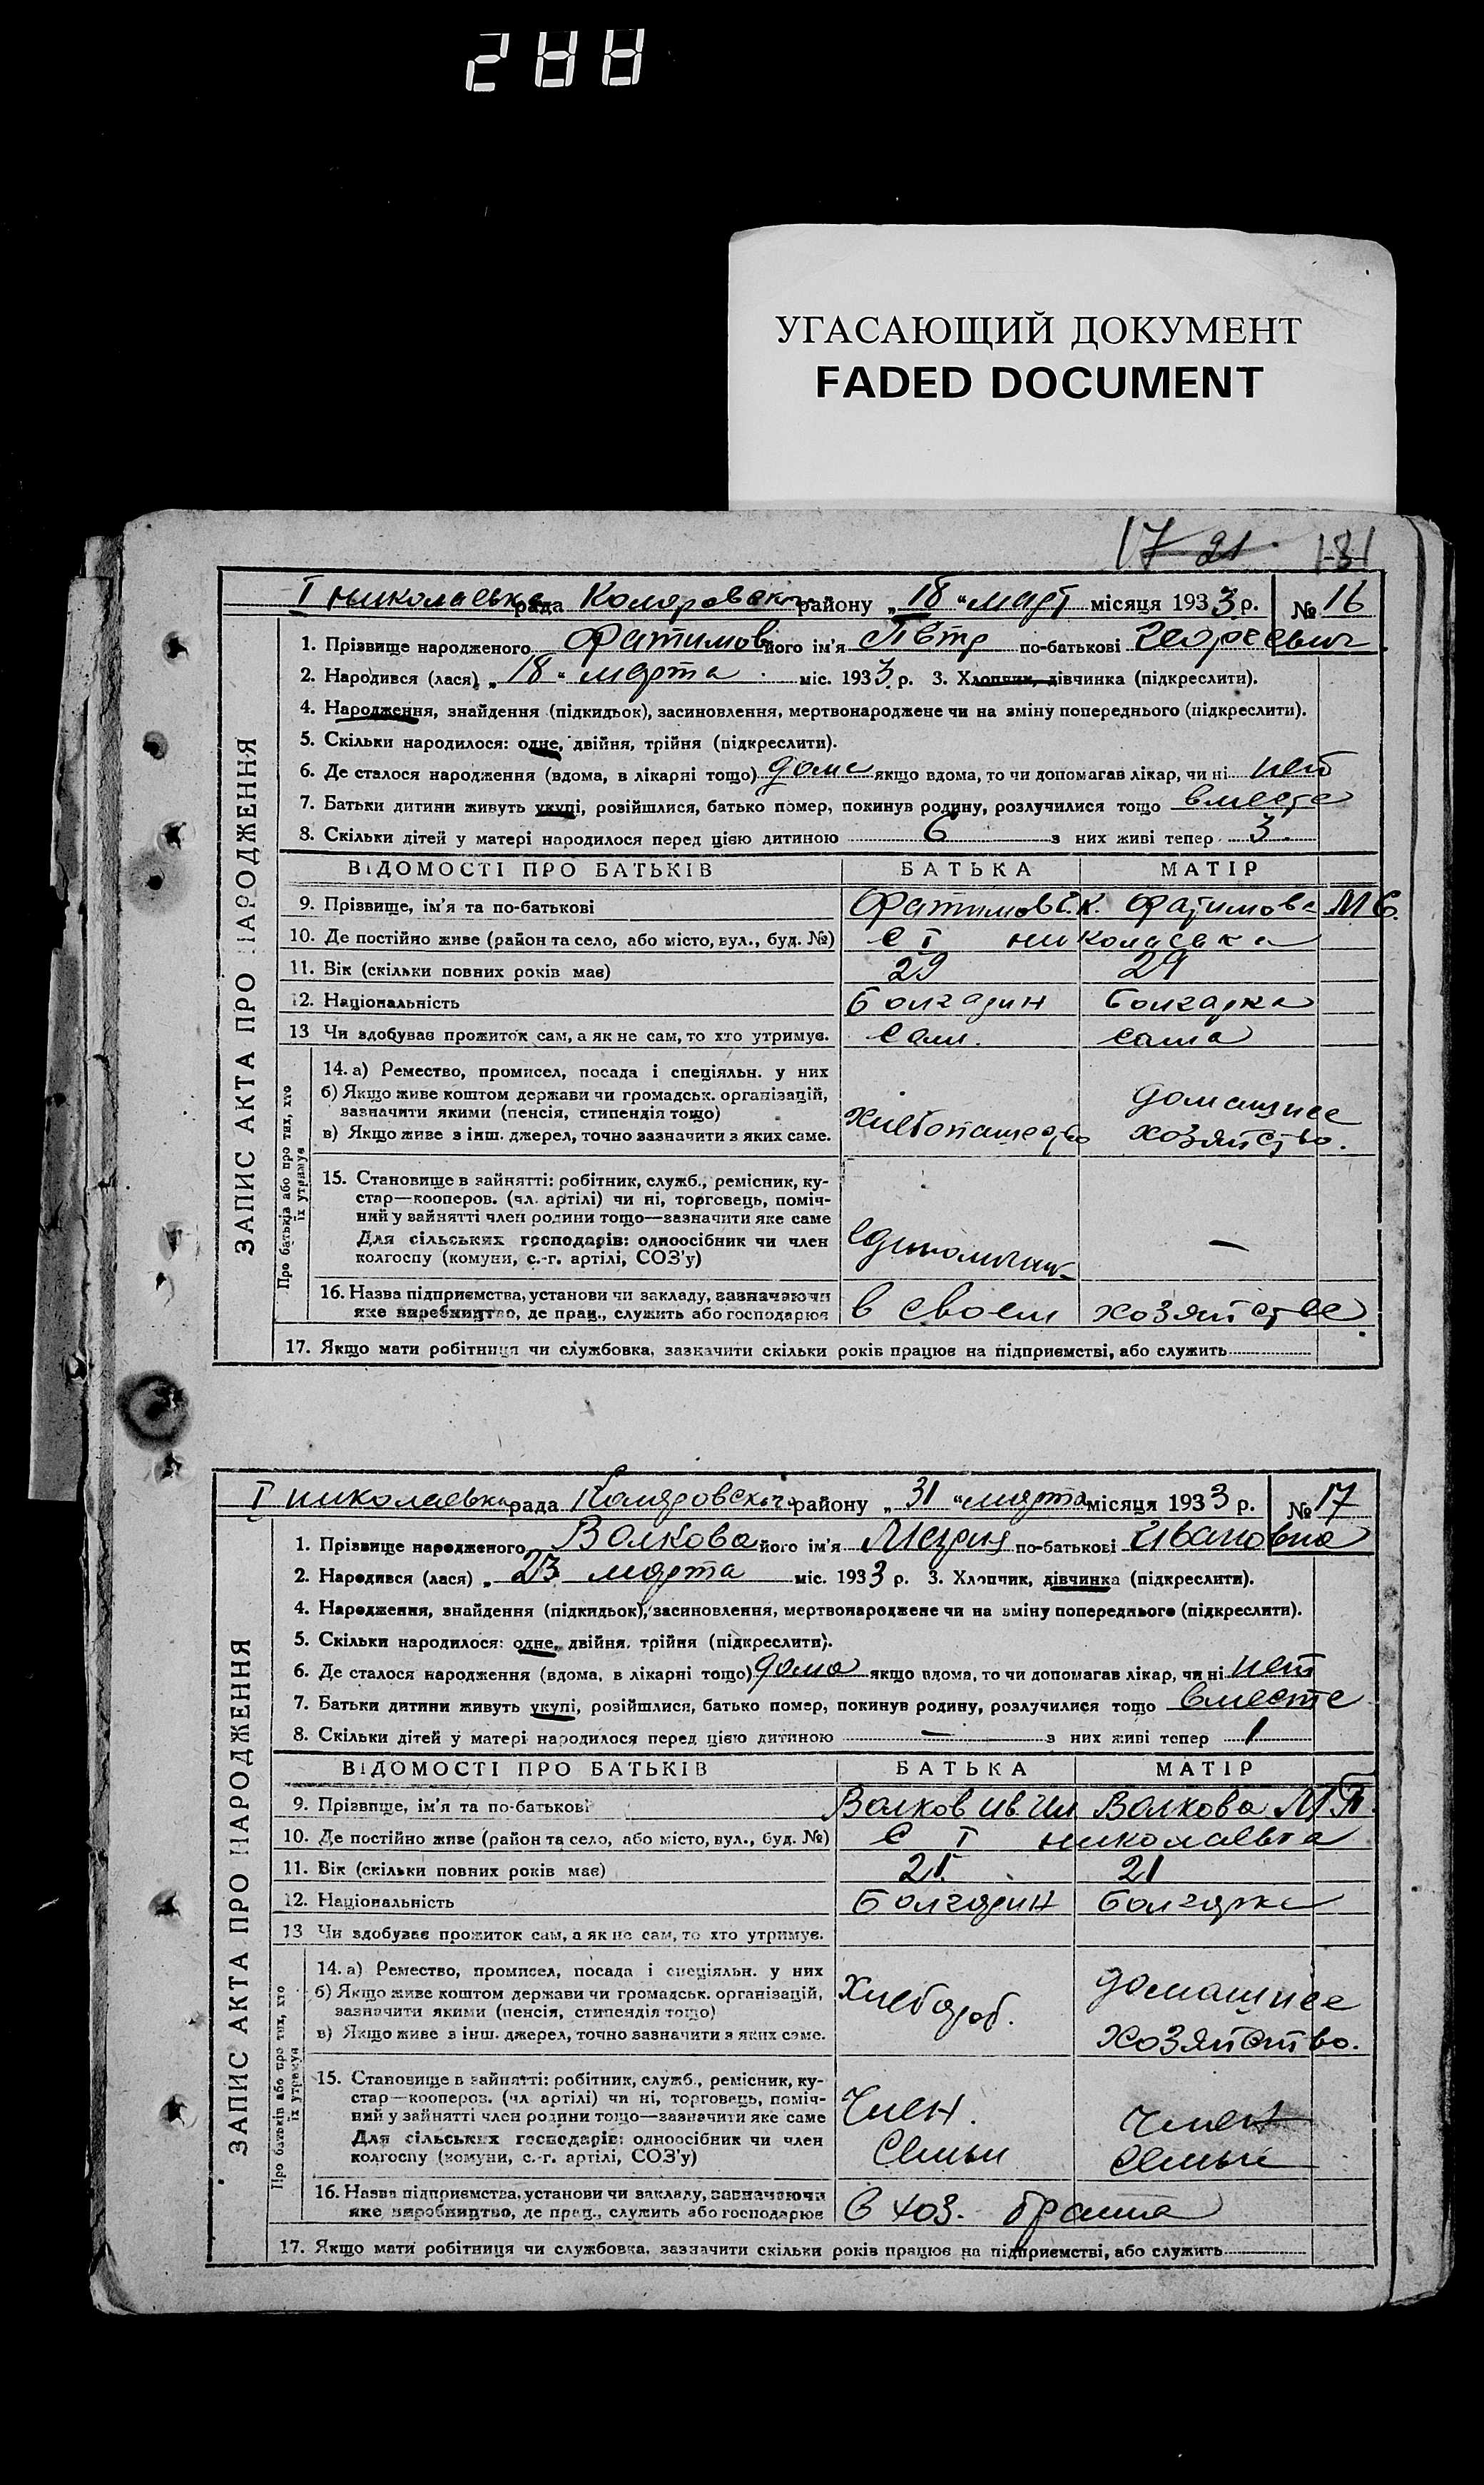 288
УГАСАЮЩИЙ ДОКУМЕНТ
FADED DOCUMENT
17 21 181
І николаевка рада Коларовск района „18“ март місяця 1933 р. № 16
1. Прізвище народженого Фатимов його ім'я Пётр по-батькові Георгевич
2. Народився (лася) „18“ марта міс. 1933 р. 3. Хлопчик, дівчинка (підкреслити).
4. Народження, знайдення (підкидьок), засиновлення, мертвонароджене чи на зміну попереднього (підкреслити).
5. Скільки народилося: одне, двійня, трійня (підкреслити).
6. Де сталося народження (вдома, в лікарні тощо) дома якщо вдома, то чи допомагав лікар, чи ні нет
7. Батьки дитини живуть укупі, розійшлися, батько помер, покинув родину, розлучилися тощо вместе
8. Скільки дітей у матері народилося перед цією дитиною 6 з них живі тепер 3
ЗАПИС АКТА ПРО НАРОДЖЕННЯ
ВІДОМОСТІ ПРО БАТЬКІВ БАТЬКА МАТІР
9. Прізвище, ім'я та по-батькові Фатимов Г.К. Фатимова М С.
10. Де постійно живе (район та село, або місто, вул., буд. №) с І николаевка
11. Вік (скільки повних років має) 29 29
12. Національність Болгарин Болгарка
13 Чи здобуває прожиток сам, а як не сам, то хто утримує. Сам. сама
Про батьків або про тих, хто їх утримує
14. а) Ремество, промисел, посада і спеціяльн. у них
б) Якщо живе коштом держави чи громадськ. організацій,
зазначити якими (пенсія, стипендія тощо)
в) Якщо живе з інш. джерел, точно зазначити з яких саме.
Хлебопашество домашнее хозяйство.
15. Становище в зайнятті: робітник, служб., ремісник, ку-
стар—кооперов. (чл. артілі) чи ні, торговець, поміч-
ний у зайнятті член родини тощо—зазначити яке саме
Для сільських господарів: одноосібник чи член
колгоспу (комуни, с.-г. артілі, СОЗ'у)
единоличник —
16. Назва підприємства, установи чи закладу, зазначаючи
яке виробництво, де прац., служить або господарює
в своем хозяйстве
17. Якщо мати робітниця чи службовка, зазначити скільки років працює на підприємстві, або служить
І николаевка рада Коларовск району „31“ марта місяця 1933 р. № 17
1. Прізвище народженого Волкова його ім'я по-батькові Ивановна
2. Народився (лася) „23 марта міс. 1933 р. 3. Хлопчик, дівчинка (підкреслити).
4. Народження, знайдення (підкидьок), засиновлення, мертвонароджене чи на зміну попереднього (підкреслити).
5. Скільки народилося: одне, двійня, трійня (підкреслити).
6. Де сталося народження (вдома, в лікарні тощо) дома якщо вдома, то чи допомагав лікар, чи ні нет
7. Батьки дитини живуть укупі, розійшлися, батько помер, покинув родину, розлучилися тощо вместе
8. Скільки дітей у матері народилося перед цією дитиною — з них живі тепер 1
ЗАПИС АКТА ПРО НАРОДЖЕННЯ
ВІДОМОСТІ ПРО БАТЬКІВ БАТЬКА МАТІР
9. Прізвище, ім'я та по-батькові Волков Ив. Ил Волкова М П.
10. Де постійно живе (район та село, або місто, вул., буд. №) с І николаевка
11. Вік (скільки повних років має) 21 21
12. Національність Болгарин Болгарка
13 Чи здобуває прожиток сам, а як не сам, то хто утримує.
Про батьків або про тих, хто їх утримує
14. а) Ремество, промисел, посада і спеціяльн. у них
б) Якщо живе коштом держави чи громадськ. організацій,
зазначити якими (пенсія, стипендія тощо)
в) Якщо живе з інш. джерел, точно зазначити з яких саме.
Хлебороб. домашнее хозяйство.
15. Становище в зайнятті: робітник, служб., ремісник, ку-
стар—кооперов. (чл. артілі) чи ні, торговець, поміч-
ний у зайнятті член родини тощо—зазначити яке саме
Для сільських господарів: одноосібник чи член
колгоспу (комуни, с.-г. артілі, СОЗ'у)
Член. семьи член семьи
16. Назва підприємства, установи чи закладу, зазначаючи
яке виробництво, де прац., служить або господарює
в хоз. брата
17. Якщо мати робітниця чи службовка, зазначити скільки років працює на підприємстві, або служить